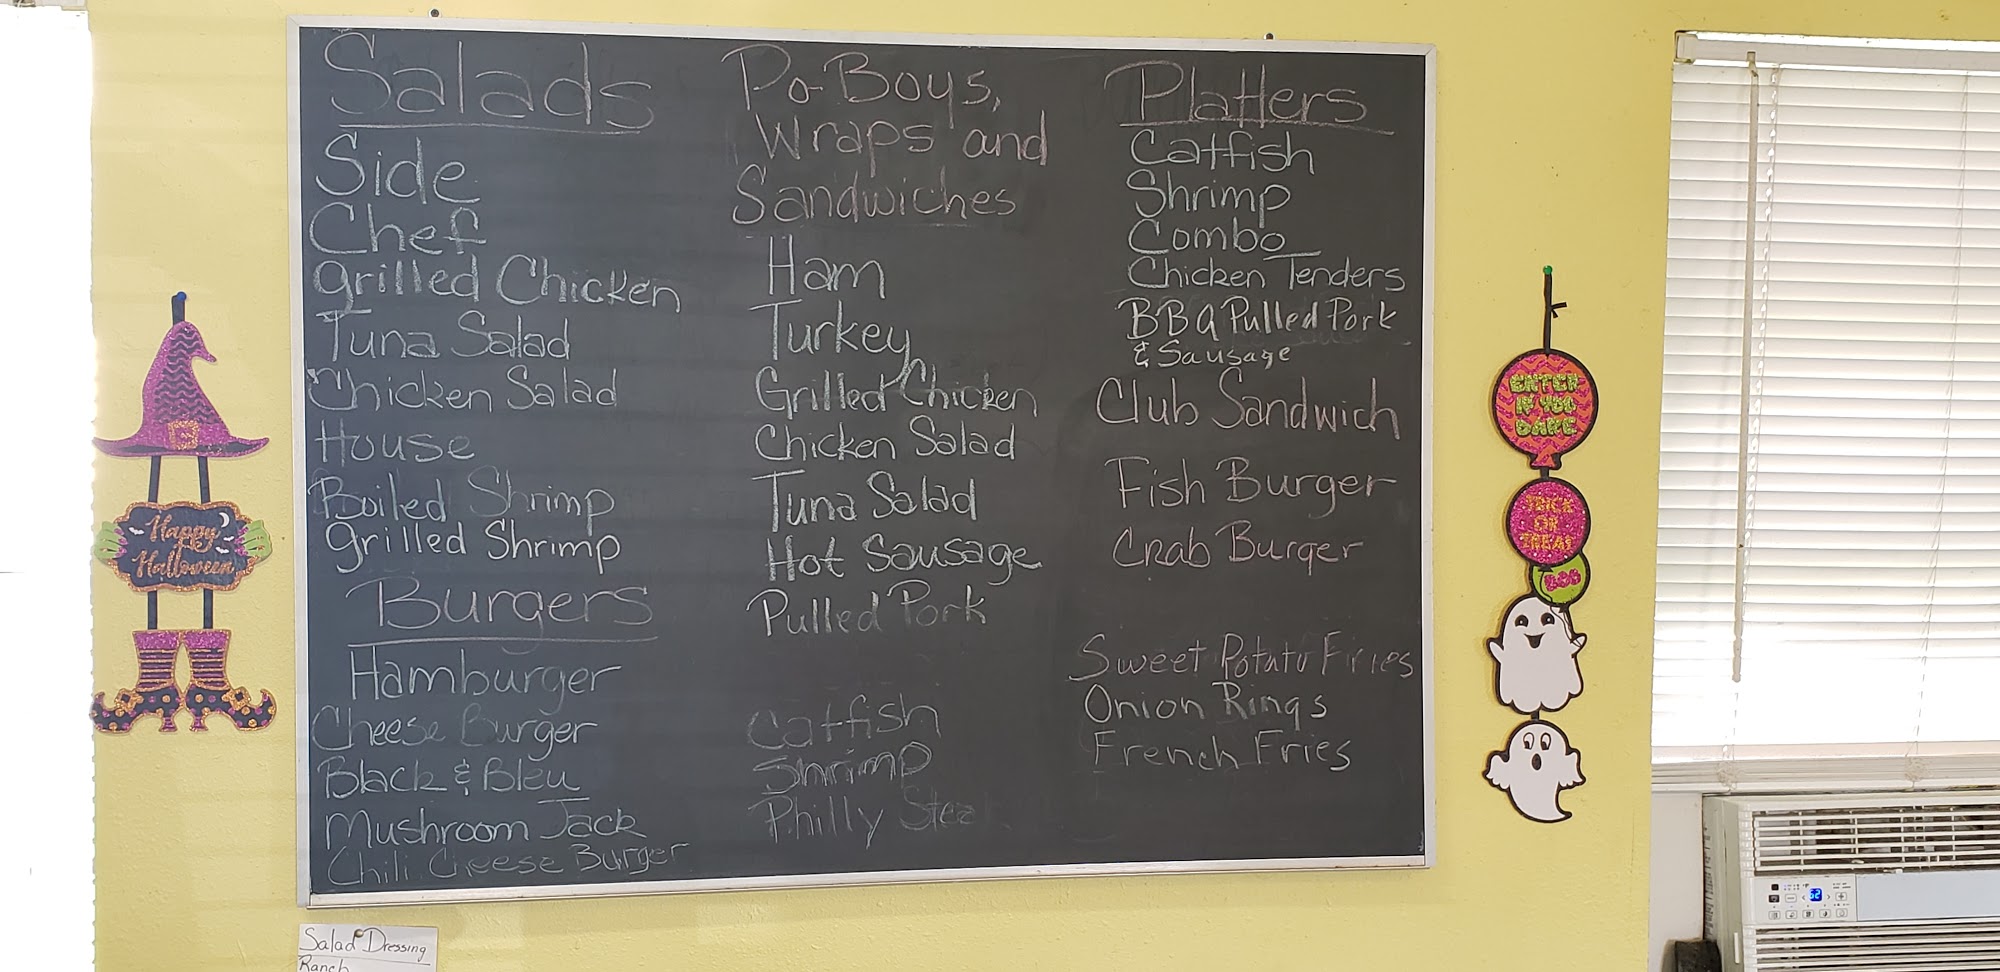 Salads
Side
Chef
Grilled Chicken
Tuna Salad
Chicken Salad
House
Boiled Shrimp
Grilled Shrimp
Burgers
Hamburger
Cheese Burger
Black & Bleu
Mushroom Jack
Chili Cheese Burger
Po-Boys,
Wraps and
Sandwiches
Ham
Turkey
Grilled Chicken
Chicken Salad
Tuna Salad
Hot Sausage
Pulled Pork
Catfish
Shrimp
Philly Stea
Platters
Catfish
Shrimp
Combo
Chicken Tenders
BBQ Pulled Pork
& Sausage
Club Sandwich
Fish Burger
Crab Burger
Sweet Potato Fries
Onion Rings
French Fries
Happy
Halloween
ENTER
IF YOU
DARE
TRICK
OR
TREAT
BOO
Salad Dressing
Ranch
62